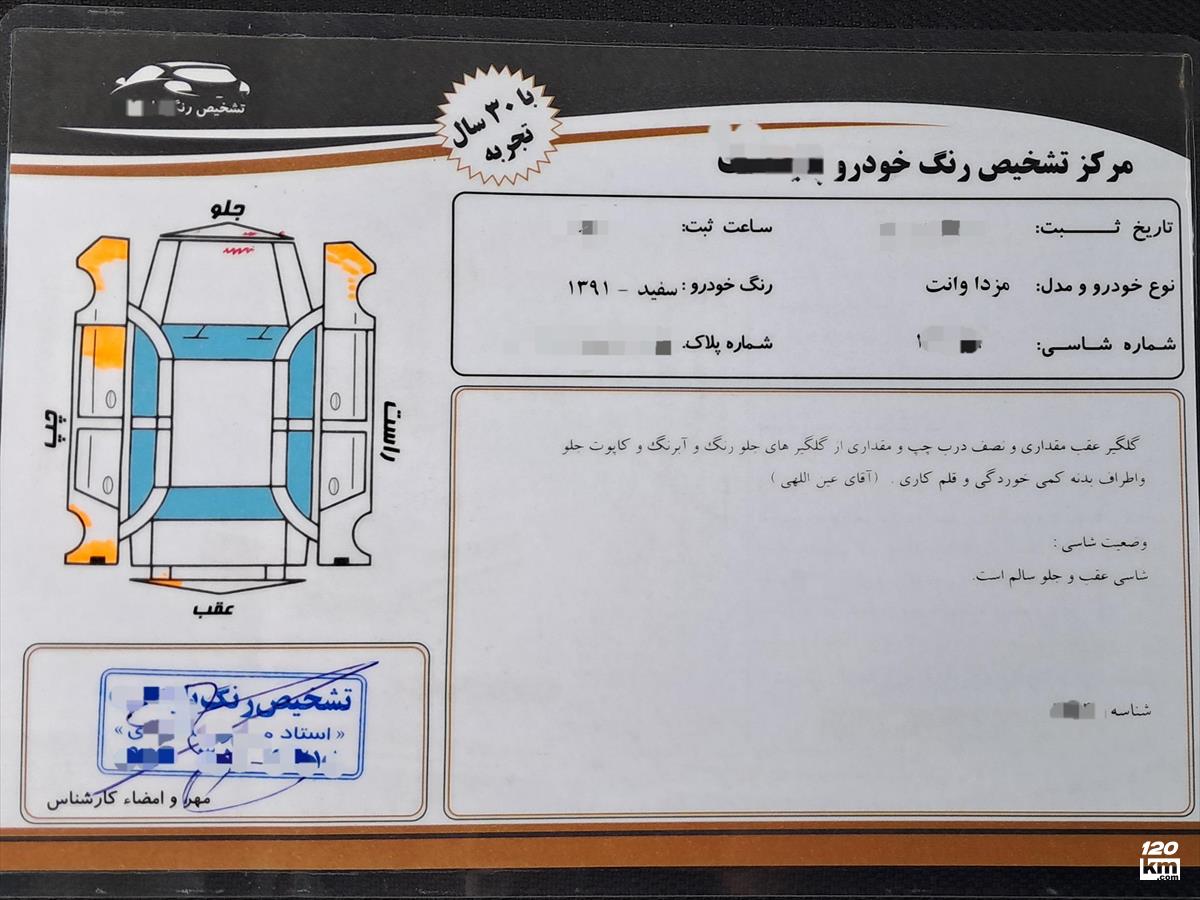 تشخیص رنگ
با ۳۰ سال
تجربه
مرکز تشخیص رنگ خودرو
تاریخ ثـــبت:
ساعت ثبت:
نوع خودرو و مدل: مزدا وانت
رنگ خودرو: سفید - ۱۳۹۱
شماره شاسی:
شماره پلاک:
گلگیر عقب مقداری و نصف درب چپ و مقداری از گلگیر های جلو رنگ و آبرنگ و کاپوت جلو
واطراف بدنه کمی خوردگی و قلم کاری . (آقای عین اللهی )
وضعیت شاسی :
شاسی عقب و جلو سالم است.
شناسه
جلو
چپ
راست
عقب
تشخیص رنگ
« استاد
مهر و امضاء کارشناس
120
km
.com